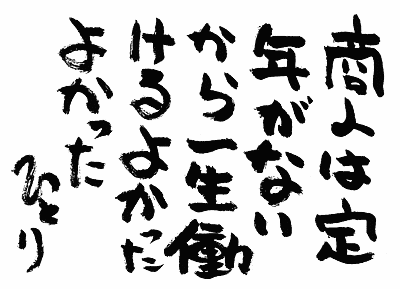 商人は定
年がない
から一生働
けるよかった
よかった
ひとり